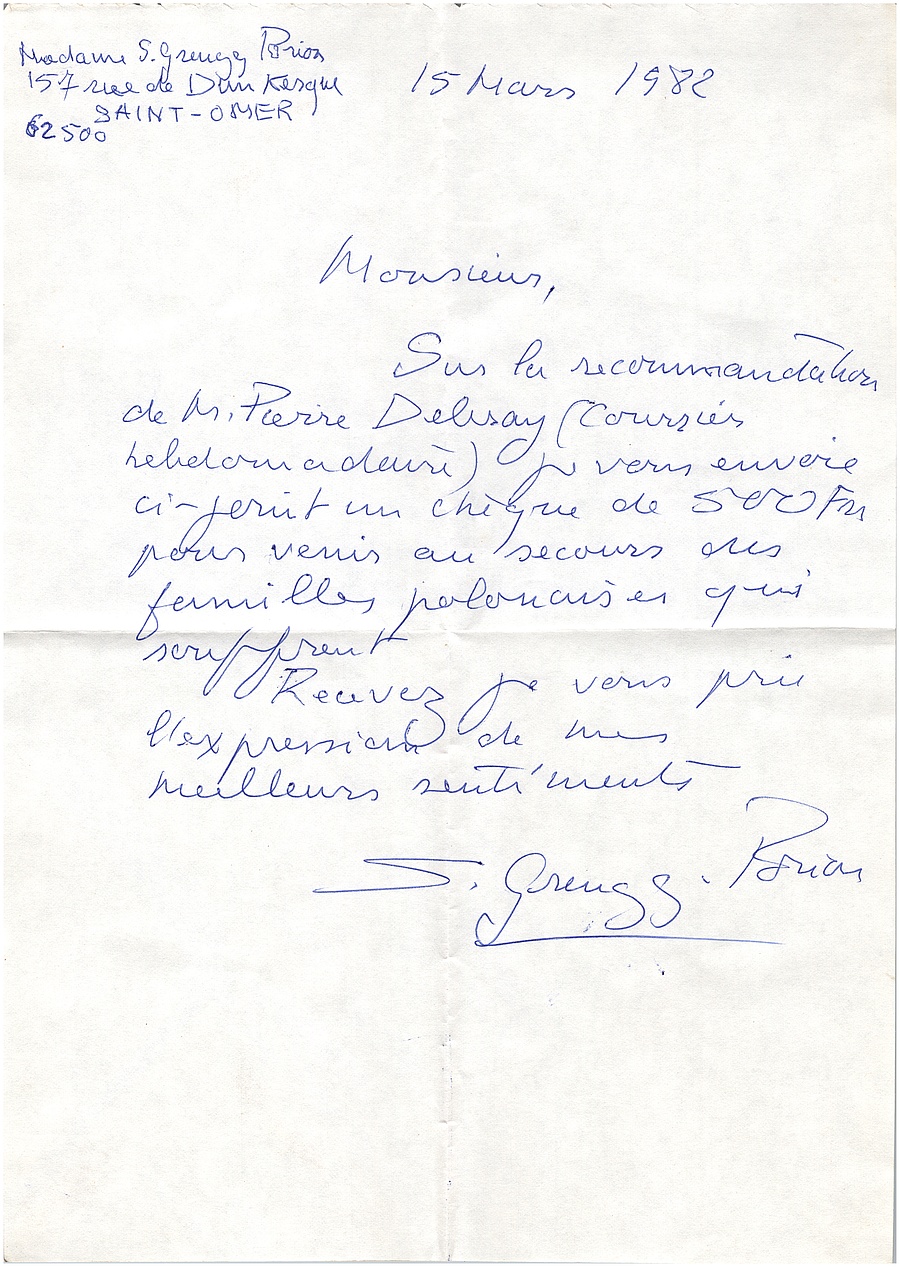 Madame S. Grengg Brion
157 rue de Dunkerque
SAINT-OMER
62500
15 Mars 1982
Monsieur,
Sur la recommandation
de M. Pierre Debray (Courrier
hebdomadaire) je vous envoie
ci-joint un chèque de 500 Frs
pour venir au secours des
familles polonaises qui
souffrent
Recevez je vous prie
l'expression de mes
meilleurs sentiments
S. Grengg. Brion